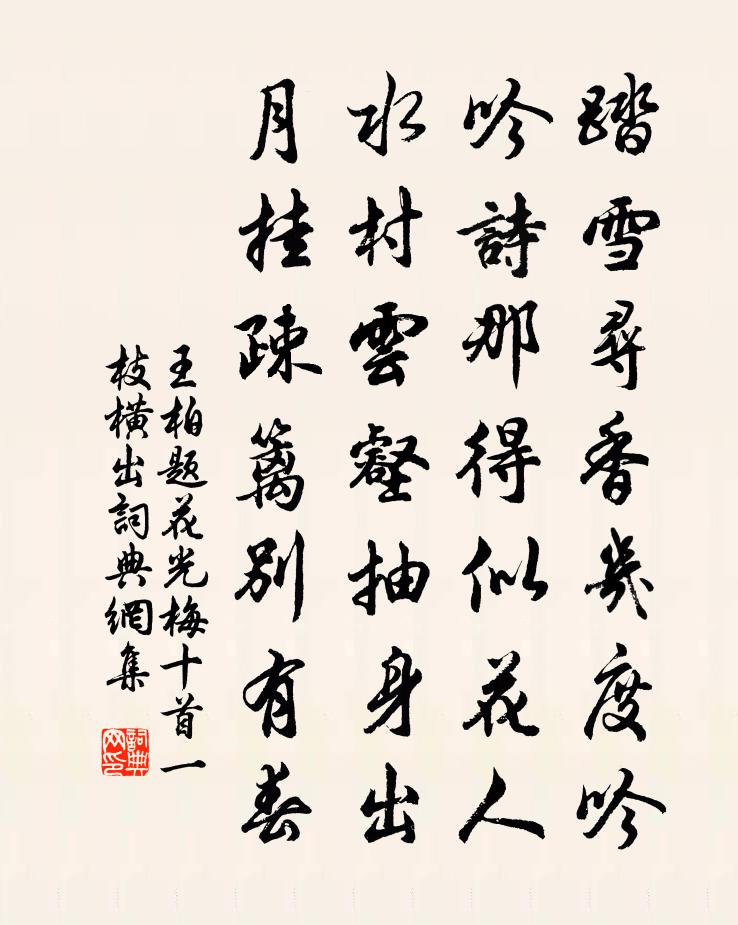 踏雪尋香幾度吟
吟詩那得似花人
水村雲壑抽身出
月挂疎籬別有春
王柏題花光梅十首一
枝橫出詞典網集
詞典
网印